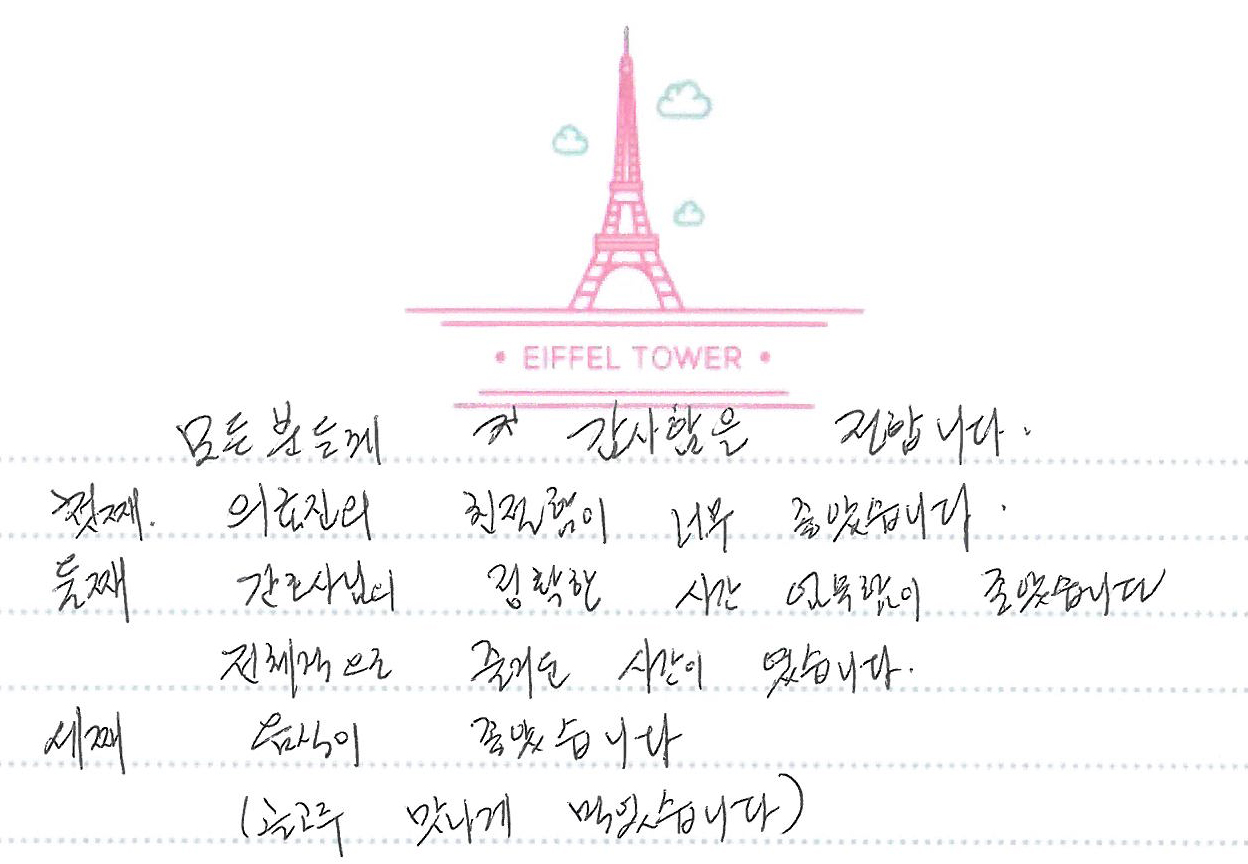 • EIFFEL TOWER •
모든분들께 감사함을 전합니다.
첫째. 의료진의 친절함이 너무 좋았습니다.
둘째 간호사님의 정확한 시간 업무랍이 좋았습니다
전체적으로 즐거운 시간이 였습니다.
세째 음식이 좋았습니다
(골고루 맛나게 먹었습니다)